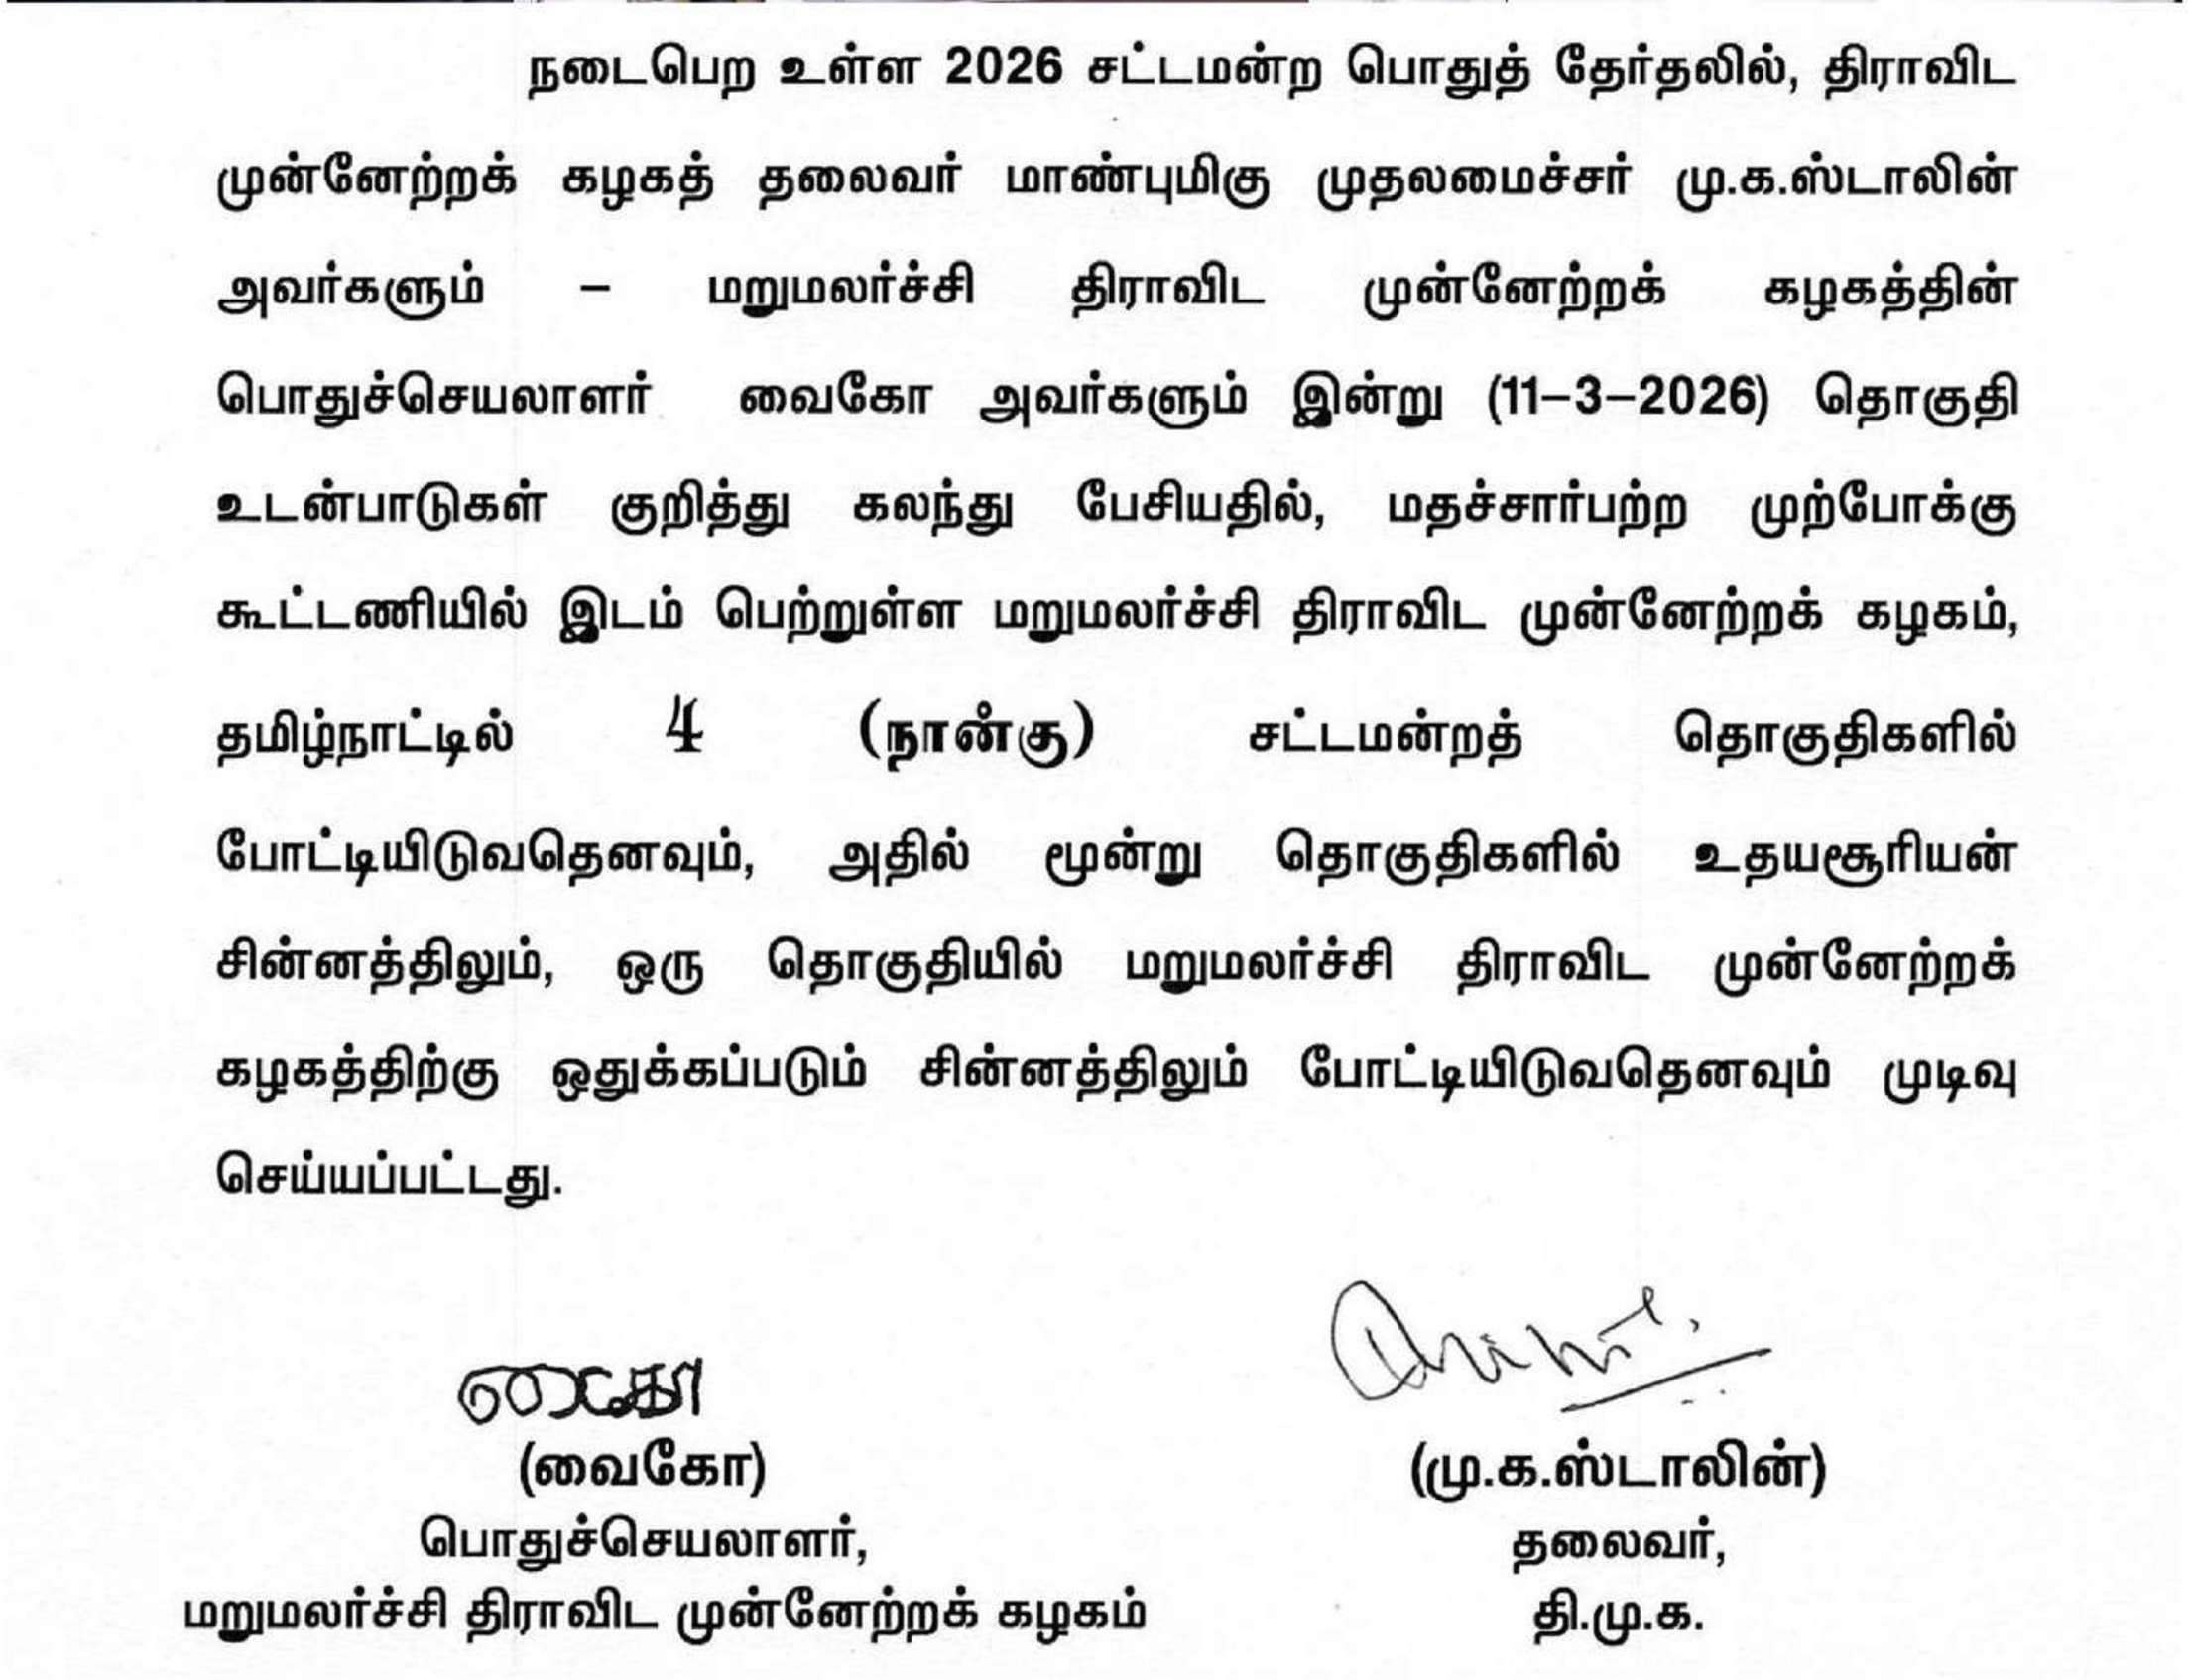 நடைபெற உள்ள 2026 சட்டமன்ற பொதுத் தேர்தலில், திராவிட
முன்னேற்றக் கழகத் தலைவர் மாண்புமிகு முதலமைச்சர் மு.க.ஸ்டாலின்
அவர்களும் – மறுமலர்ச்சி திராவிட முன்னேற்றக் கழகத்தின்
பொதுச்செயலாளர் வைகோ அவர்களும் இன்று (11–3–2026) தொகுதி
உடன்பாடுகள் குறித்து கலந்து பேசியதில், மதச்சார்பற்ற முற்போக்கு
கூட்டணியில் இடம் பெற்றுள்ள மறுமலர்ச்சி திராவிட முன்னேற்றக் கழகம்,
தமிழ்நாட்டில் 4 (நான்கு) சட்டமன்றத் தொகுதிகளில்
போட்டியிடுவதெனவும், அதில் மூன்று தொகுதிகளில் உதயசூரியன்
சின்னத்திலும், ஒரு தொகுதியில் மறுமலர்ச்சி திராவிட முன்னேற்றக்
கழகத்திற்கு ஒதுக்கப்படும் சின்னத்திலும் போட்டியிடுவதெனவும் முடிவு
செய்யப்பட்டது.
வைகோ
(வைகோ)
பொதுச்செயலாளர்,
மறுமலர்ச்சி திராவிட முன்னேற்றக் கழகம்
(மு.க.ஸ்டாலின்)
தலைவர்,
தி.மு.க.